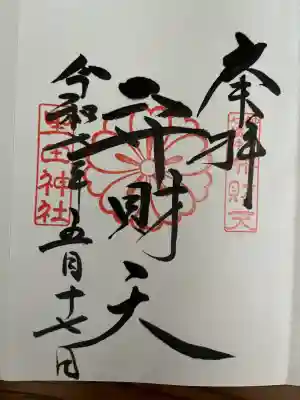 奉拝
弁財天
令和年五月十七日
田神社
財天